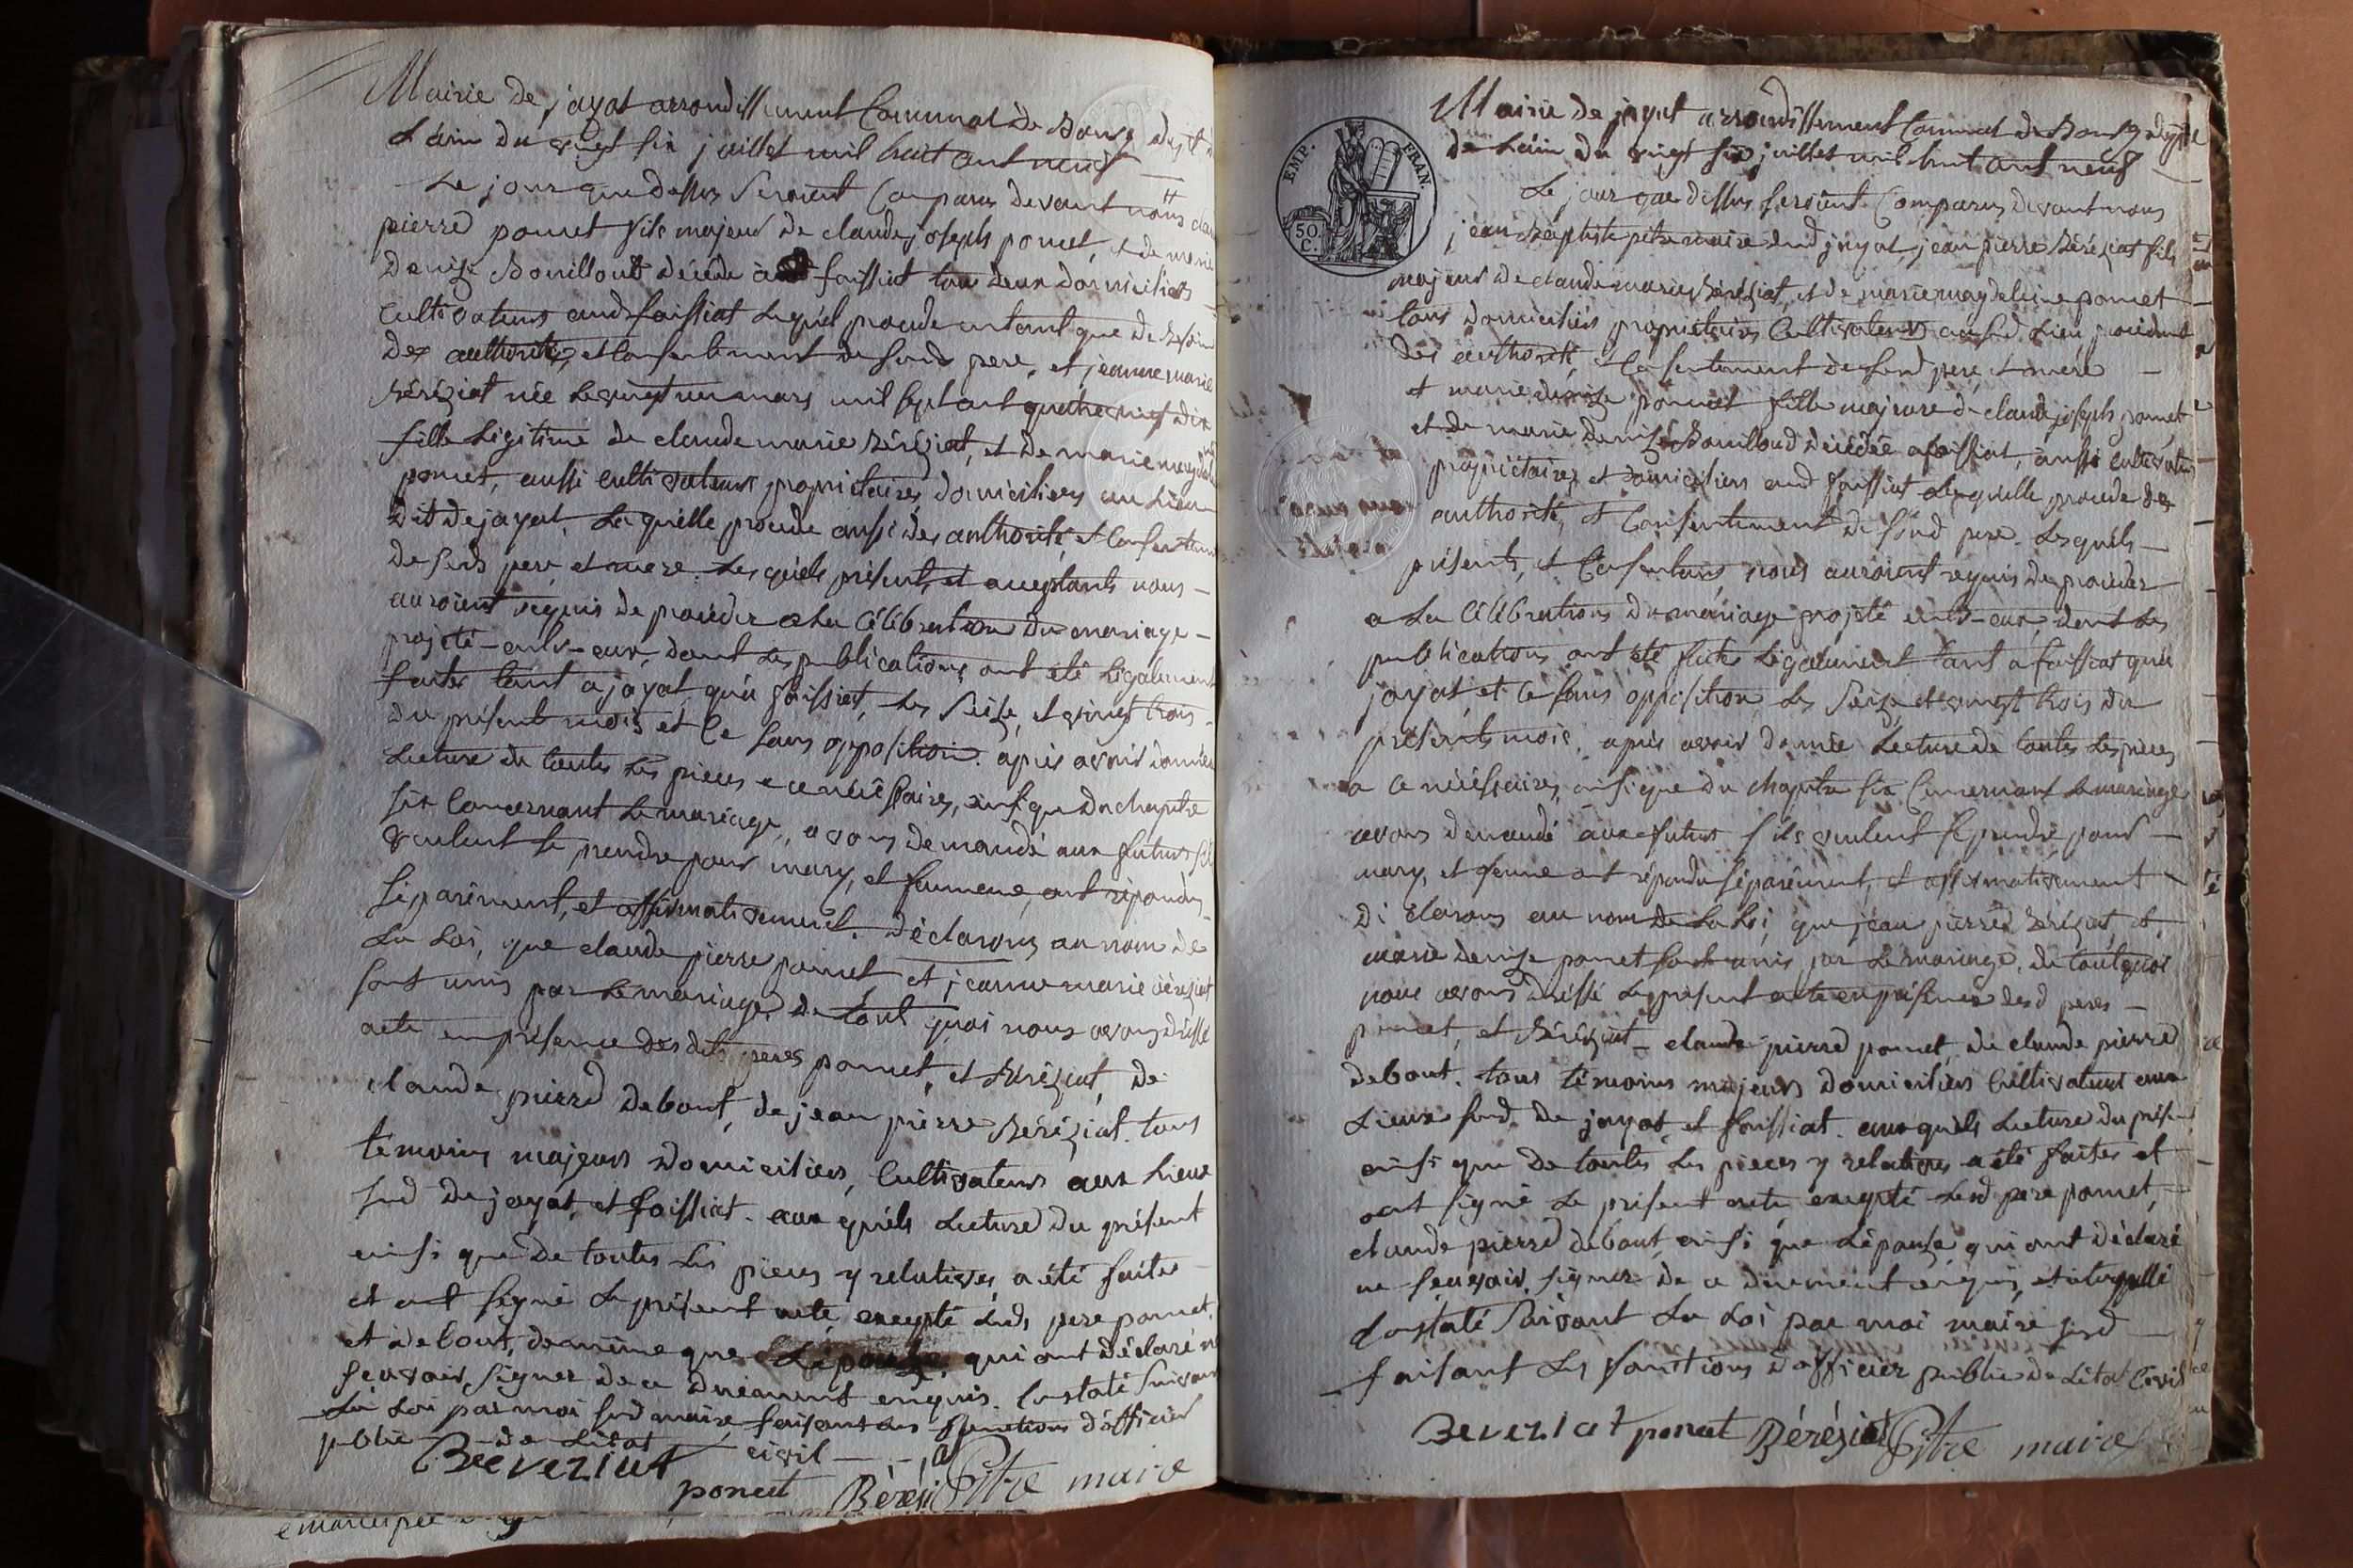 Mairie de jayat arrondissement Communal de Bourg depᵗ
L'ain du vingt six juillet mil huit cent neuf
Le jour que dessus seroient Comparus devant nous
pierre poncet fils majeur de claude joseph poncet, et de marie
denise Bouilloud décédé à foissiat tous deux domiciliers
Cultivateurs aud foissiat Lequel procede entant que de besoin
des authorité, et Consentement de sond pere, et jeanne marie
Béréziat née le vingt un mars mil sept cent quatre vingt dix
fille Légitime de claude marie Béréziat, et de marie magdelaine
poncet, aussi cultivateurs propriétaires domiciliers au Lieu
dit de jayat, Laquelle procede aussi des authorité, et Consentement
de sesd pere et mere. Lesquels présents, et acceptants nous –
auroient requis de procéder a La Célébration du mariage –
projeté entr-eux, dont les publications ont été Légalement
faites tant a jayat, qu'a foissiat, les seize, et vingt trois –
du présent mois et Ce sans opposition. après avoir donnée
Lecture de toutes les pieces a ce nécéssaires, insi que du chapitre
six Concernant Le mariage, avons demandé aux futurs s'il
veulent se prendre pour mary, et femme, ont répondu
séparément, et affirmativement. déclarons au nom de
La Loi, que claude pierre poncet, et jeanne marie béréziat
sont unis par Le mariage, de tout quoi nous avons dréssé
acte en présence des dits peres poncet, et Béréziat, de
claude pierre debout, de jean pierre Béréziat. tous
témoins majeurs domiciliers, Cultivateurs aux Lieux
susd de jayat, et foissiat. aux quels Lecture du présent
ainsi que de toutes Les pieces y relatives, a été faites
et ont signé Le présent acte, excepté Leds pere poncet,
et debout, de même que L'épouse, qui ont déclaré ne
scavoir signer de ce duement enquis. Constaté suivant
La Loi par moi susd maire faisant Les fonctions d'officier
public de L'état civil
Beveziat
poncet Bérézi Pitre maire
emancipée
Mairie de jayat arrondissement Communal de Bourg depᵗ
de L'ain du vingt six juillet mil huit cent neuf
EMP. FRAN.
50 C.
Le jour que dessus seroient Comparus devant nous
jean Baptiste pitre maire dud jayat, jean pierre Béréziat fils
majeur de claude marie Béréziat, et de marie magdeleine poncet
tous domiciliés propriétaires Cultivateurs aususd Lieu procédant
des authorité, et Consentement de sesd pere, et mere –
et marie denise poncet fille majeure de claude joseph poncet
et de marie denise Bouilloud décédée a foissiat, aussi cultivateur
propriétaires et domiciliers aud foissiat Laquelle procede des
authorité, et Consentement de sond pere. Lesquels –
présents, et Consentans, nous auroient requis de procéder
a La Célébration du mariage projeté entr-eux, dont les
publications ont été faites Légalement tant a foissiat qu'a
jayat, et ce sans opposition Les seize et vingt trois du
présents mois, après avoir donnée Lecture de toutes Les pieces
a ce nécéssaires, insi que du chapitre six Concernant Le mariage
avons demandé aux futurs s'ils veulent se prendre pour –
mary, et femme ont répondu séparément, et affirmativement –
Déclarons au nom de La Loi, que jean pierre Béréziat, et
marie denise poncet sont unis par Le mariage, de tout quoi
nous avons dréssé Le présent acte en présence desd peres –
poncet, et Béréziat – claude pierre poncet, de claude pierre
debout. tous témoins majeurs domiciliers Cultivateurs aux
Lieux susd. de jayat, et foissiat. auxquels Lecture du présent
ainsi que de toutes Les pieces y relatives a été faites et
ont signé Le présent acte excepté Led pere poncet,
claude pierre debout, ainsi que L'épouse qui ont déclaré
ne scavoir signer de ce duement enquis, et interpellé
Constaté suivant La Loi par moi maire susd –
faisant Les fonctions d'officier public de L'état Civil
Beveziat poncet Béréziat Pitre maire